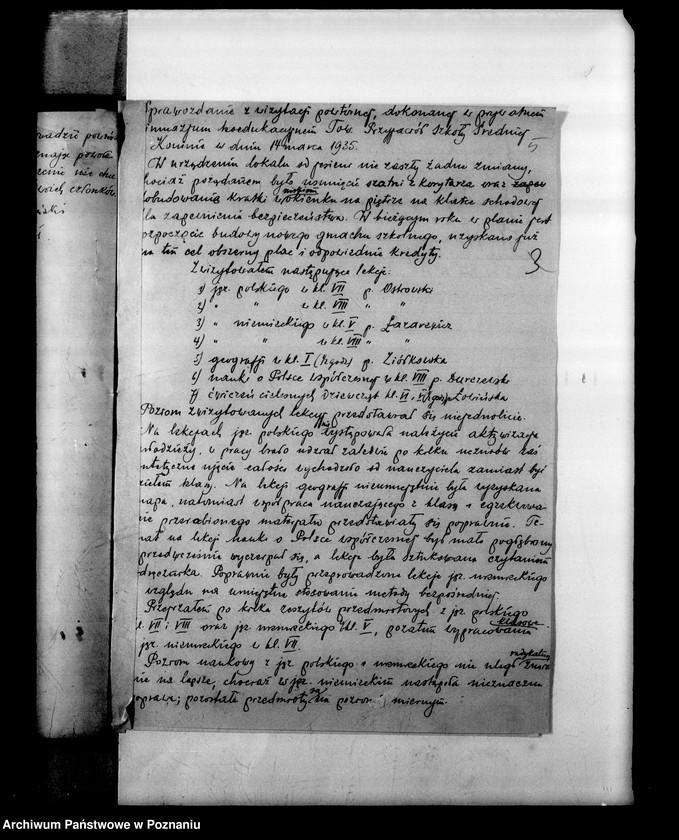 wadził powtó
znając powoła
zenie nie chce
wich członków
Sprawozdanie z wizytacji powtórnej, dokonanej w prywatnem
Gimnazjum koedukacyjnem Tow. Przyjaciół Szkoły Średniej
Koninie w dniu 14 marca 1935.
5
W urządzeniu lokalu od jesieni nie zaszły żadne zmiany,
chociaż pożądanem było usunięcie szatni z korytarza oraz
obudowanie kratki w niskiem okienku na piętrze na klatce schodowej
dla zapewnienia bezpieczeństwa. W bieżącym roku w planie jest
rozpoczęcie budowy nowego gmachu szkolnego, uzyskano już
na ten cel obszerny plac i odpowiednie kredyty.
3
Zwizytowałem następujące lekcje:
1) jęz. polskiego w kl. VII p. Ostrowski
2) " " w kl. VIII " "
3) " niemieckiego w kl. V p. Lazarewicz
4) " " w kl. VIII " "
5) geografji w kl. I p. Ziółkowska
6) nauki o Polsce współczesnej w kl. VIII p.
7) ćwiczeń cielesnych dziewcząt kl. VI i
Poziom zwizytowanych lekcyj przedstawiał się niejednolicie.
Na lekcjach jęz. polskiego nie występowała należycie aktywizacja
młodzieży, w pracy brało udział zaledwie po kilku uczniów zaś
syntetyczne ujęcie całości wychodziło od nauczyciela zamiast być
dziełem klasy. Na lekcji geografji nieumiejętnie była wyzyskana
mapa, natomiast współpraca nauczającego z klasą i egzekwowa-
nie przerabianego materjału przedstawiały się poprawnie. Te-
mat na lekcji nauki o Polsce współczesnej był mało pogłębiony
przedwcześnie wyczerpał się, a lekcja była sztukowana czytaniem
podręcznika. Poprawnie były przeprowadzone lekcje jęz. niemieckiego
względu na umiejętne stosowanie metody bezpośredniej.
Przejrzałem po kilka zeszytów przedmiotowych z jęz. polskiego
kl. VII i VIII oraz jęz. niemieckiego kl. V, pozatem wypracowania klasowe
jęz. niemieckiego w kl. VII.
Poziom naukowy z jęz. polskiego i niemieckiego nie uległ radykalnej zmia-
nie na lepsze, chociaż w jęz. niemieckim nastąpiła nieznaczna
poprawa; pozostałe przedmioty są na poziomie miernym.
Archiwum Państwowe w Poznaniu